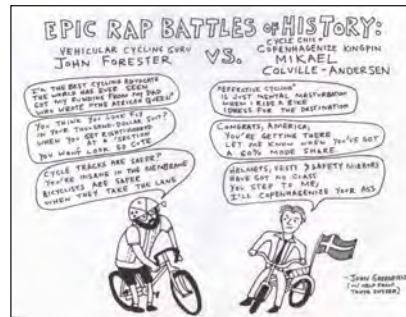 EPIC RAP BATTLES OF HISTORY:
VEHICULAR CYCLING GURU
JOHN FORESTER
VS.
CYCLE CHIC +
COPENHAGENIZE KINGPIN
MIKAEL
COLVILLE-ANDERSEN
I'M THE BEST CYCLING ADVOCATE
THE WORLD HAS EVER SEEN
GOT MY FUNDING FROM MY DAD
WHO WROTE "THE AFRICAN QUEEN"
YOU THINK YOU LOOK FLY
IN YOUR THOUSAND-DOLLAR SUIT?
WHEN YOU GET RIGHT-HOOKED
AT A 'SECTION
YOU WON'T LOOK SO CUTE
CYCLE TRACKS ARE SAFER?
YOU'RE INSANE IN THE MEMBRANE
BICYCLISTS ARE SAFER
WHEN THEY TAKE THE LANE
"EFFECTIVE CYCLING"
IS JUST MENTAL MASTURBATION
WHEN I RIDE A BIKE
I DRESS FOR THE DESTINATION
CONGRATS, AMERICA,
YOU'RE GETTING THERE
LET ME KNOW WHEN YOU'VE GOT
A 60% MODE SHARE
HELMETS, VESTS & SAFETY MIRRORS
HAVE GOT NO CLASS
YOU STEP TO ME,
I'LL COPENHAGENIZE YOUR ASS
-JOHN GREENFIELD
(W/ HELP FROM